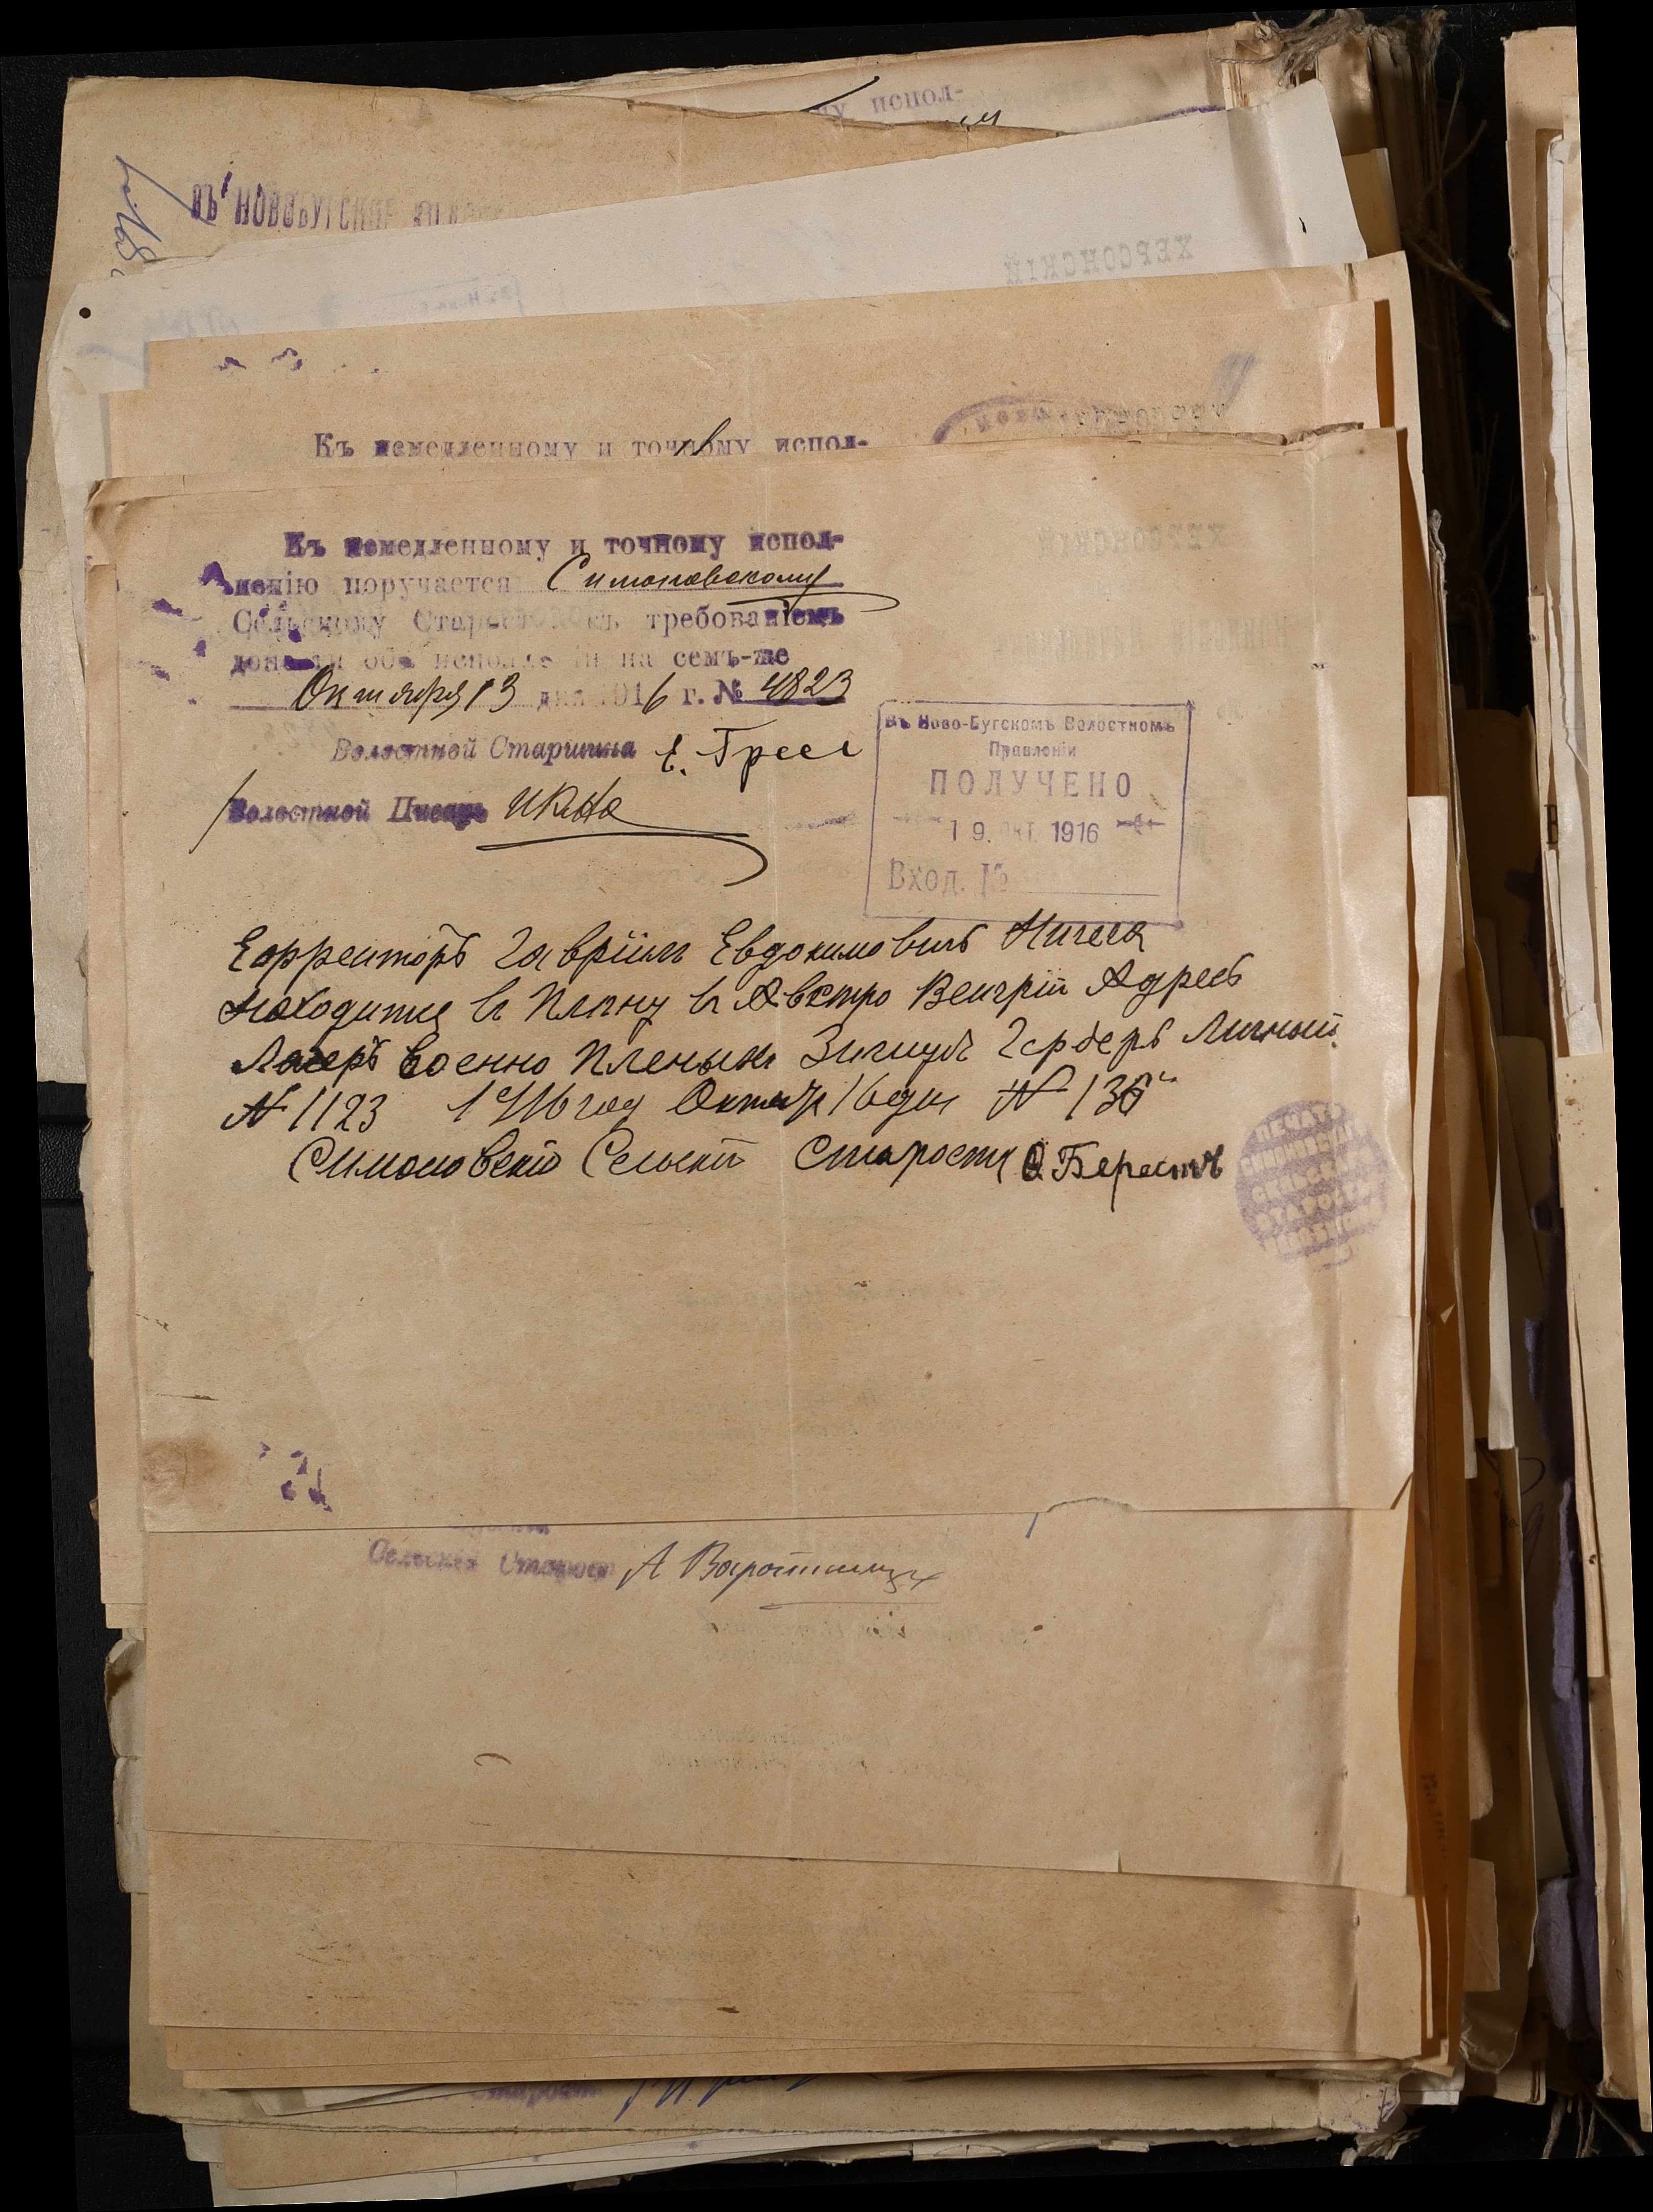 му испол-
ВЪ НОВОБУГСКОЕ
ХЕРСОНСКІЙ
Къ немедленному и точному испол-
Къ немедленному и точному испол-
ненію поручается Симоновскому
Сельскому Старостѣ съ требованіемъ
донести объ исполненіи на семъ-же
Октября 13 дня 1916 г. № 4823
Волостной Старшина Е. Гресь
Волостной Писарь
Въ Ново-Бугскомъ Волостномъ
Правленіи
ПОЛУЧЕНО
19. ОКТ. 1916
Вход. №
Ефрейторъ Гавріилъ Евдокимовичъ
Находится в Плену в Австро Венгріи Адресъ
Лагеръ Военно Пленых Личный
№ 1123 1916 год Октяр 16 дня № 136
Симоновскій Сельскій Староста О Берестъ
ПЕЧАТЬ
СЕЛЬСК
СТАРОСТЫ
Сельскій Староста А